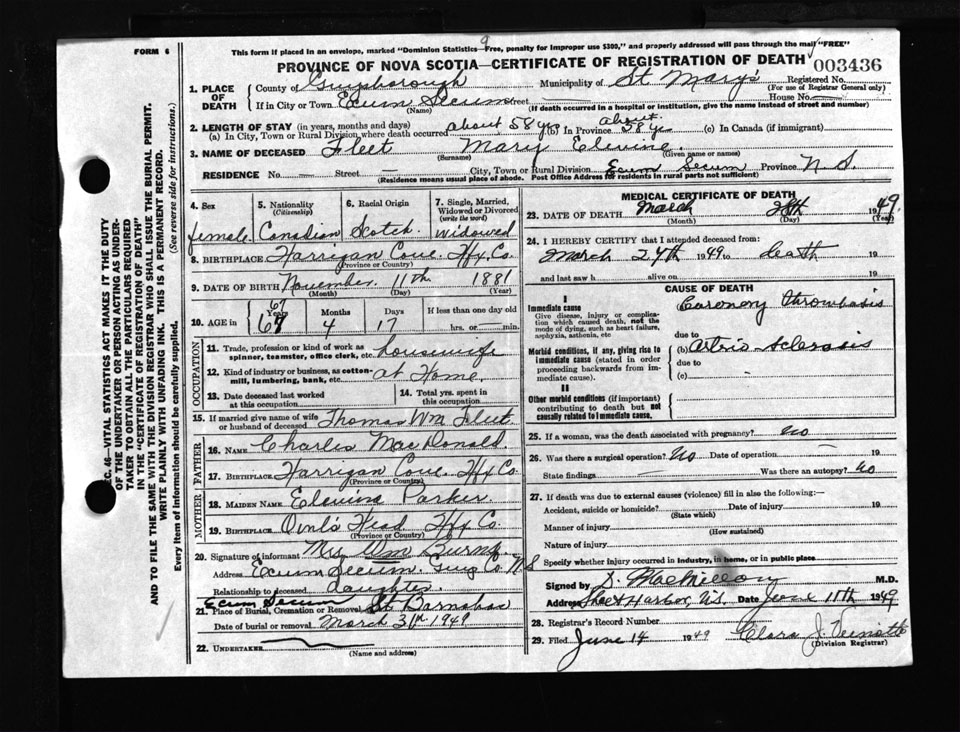 FORM 6
9
This form if placed in an envelope, marked "Dominion Statistics—Free, penalty for improper use $300," and properly addressed will pass through the mail "FREE"
PROVINCE OF NOVA SCOTIA—CERTIFICATE OF REGISTRATION OF DEATH
003436
1. PLACE OF DEATH
County of Guysborough Municipality of St Mary's Registered No.
(For use of Registrar General only)
If in City or Town Ecum Secum Street House No. —
(Name) (If death occurred in a hospital or institution, give the name instead of street and number)
2. LENGTH OF STAY (in years, months and days)
(a) In City, Town or Rural Division where death occurred about 58 yrs (b) In Province about 58 yr (c) In Canada (if immigrant)
3. NAME OF DECEASED Fleet Mary Elevine
(Surname) (Given name or names)
RESIDENCE No. — Street — City, Town or Rural Division Ecum Secum Province N S
(Residence means usual place of abode. Post Office Address for residents in rural parts not sufficient)
4. Sex female
5. Nationality (Citizenship) Canadian
6. Racial Origin Scotch
7. Single, Married, Widowed or Divorced (write the word) widowed
8. BIRTHPLACE Harrigan Cove Hfx Co.
(Province or Country)
9. DATE OF BIRTH November 11th 1881
(Month) (Day) (Year)
10. AGE in 67 Years 67 Months 4 Days 17 If less than one day old hrs. or min.
OCCUPATION
11. Trade, profession or kind of work as spinner, teamster, office clerk, etc. housewife
12. Kind of industry or business, as cotton-mill, lumbering, bank, etc. at Home.
13. Date deceased last worked at this occupation
14. Total yrs. spent in this occupation
15. If married give name of wife or husband of deceased Thomas Wm Fleet
FATHER
16. NAME Charles MacDonald
17. BIRTHPLACE Harrigan Cove Hfx Co
(Province or Country)
MOTHER
18. MAIDEN NAME Elevina Parker
19. BIRTHPLACE Owl's Head Hfx Co.
(Province or Country)
20. Signature of informant Mrs Wm Burns
Address Ecum Secum. Guy Co N S
Relationship to deceased daughter
Ecum Secum
21. Place of Burial, Cremation or Removal St Barnabas
Date of burial or removal March 31st 1949
22. UNDERTAKER
(Name and address)
MEDICAL CERTIFICATE OF DEATH
23. DATE OF DEATH March 28th 1949
(Month) (Day) (Year)
24. I HEREBY CERTIFY that I attended deceased from:
March 27th 1949 to death 19
and last saw h alive on 19
CAUSE OF DEATH
I
Immediate cause
Give disease, injury or complication which caused death, not the mode of dying, such as heart failure, asphyxia, asthenia, etc
Coronory Thrombosis
due to
Morbid conditions, if any, giving rise to immediate cause (stated in order proceeding backwards from immediate cause)
(b) arterio-sclerosis
due to
(c)
II
Other morbid conditions (if important) contributing to death but not causally related to immediate cause.
25. If a woman, was the death associated with pregnancy? no
26. Was there a surgical operation? No Date of operation 19
State findings — Was there an autopsy? no
27. If death was due to external causes (violence) fill in also the following:—
Accident, suicide or homicide? Date of injury 19
(State which)
Manner of injury
(How sustained)
Nature of injury
Specify whether injury occurred in industry, in home, or in public place
Signed by M.D.
Address Sheet Harbor, N.S. Date June 11th 1949
28. Registrar's Record Number
29. Filed June 14 1949 Clara J.
(Division Registrar)
SEC. 46—VITAL STATISTICS ACT MAKES IT THE DUTY
OF THE UNDERTAKER OR PERSON ACTING AS UNDERTAKER TO OBTAIN ALL THE PARTICULARS REQUIRED
IN THE "CERTIFICATE OF REGISTRATION OF DEATH"
AND TO FILE THE SAME WITH THE DIVISION REGISTRAR WHO SHALL ISSUE THE BURIAL PERMIT.
WRITE PLAINLY WITH UNFADING INK. THIS IS A PERMANENT RECORD.
Every item of information should be carefully supplied. (See reverse side for instructions.)